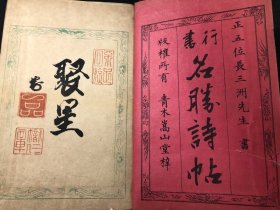 正五位長三洲先生書
行書
名勝詩帖
版權所有 青木嵩山堂梓
聚星